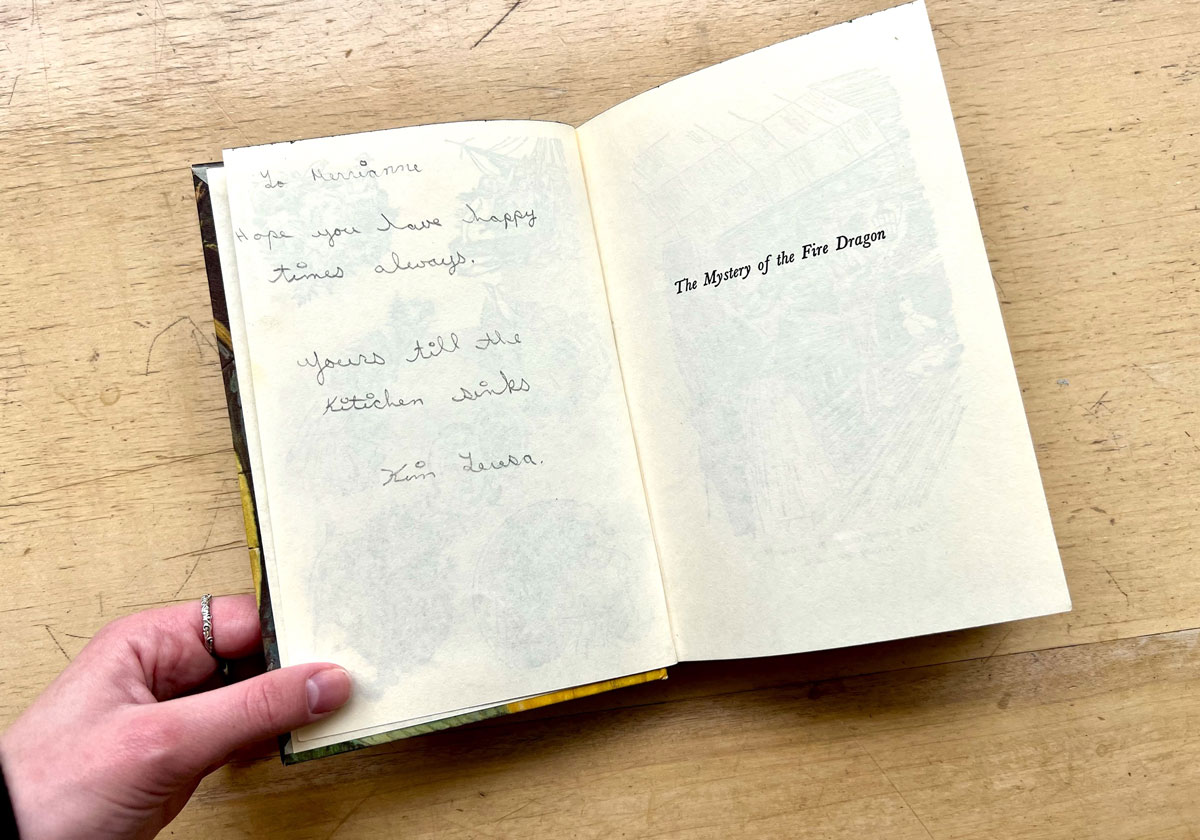 To Merrianne
Hope you have happy
times always.
Yours till the
Kitichen sinks
Kim Teresa.
The Mystery of the Fire Dragon